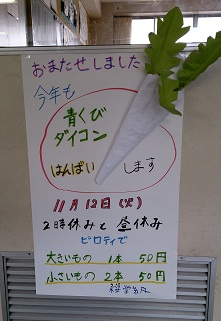 おまたせしました
今年も
青くび
ダイコン
はんばい します
11月12日(火)
2時休みと昼休み
ピロティで
大きいもの 1本 50円
小さいもの 2本 50円